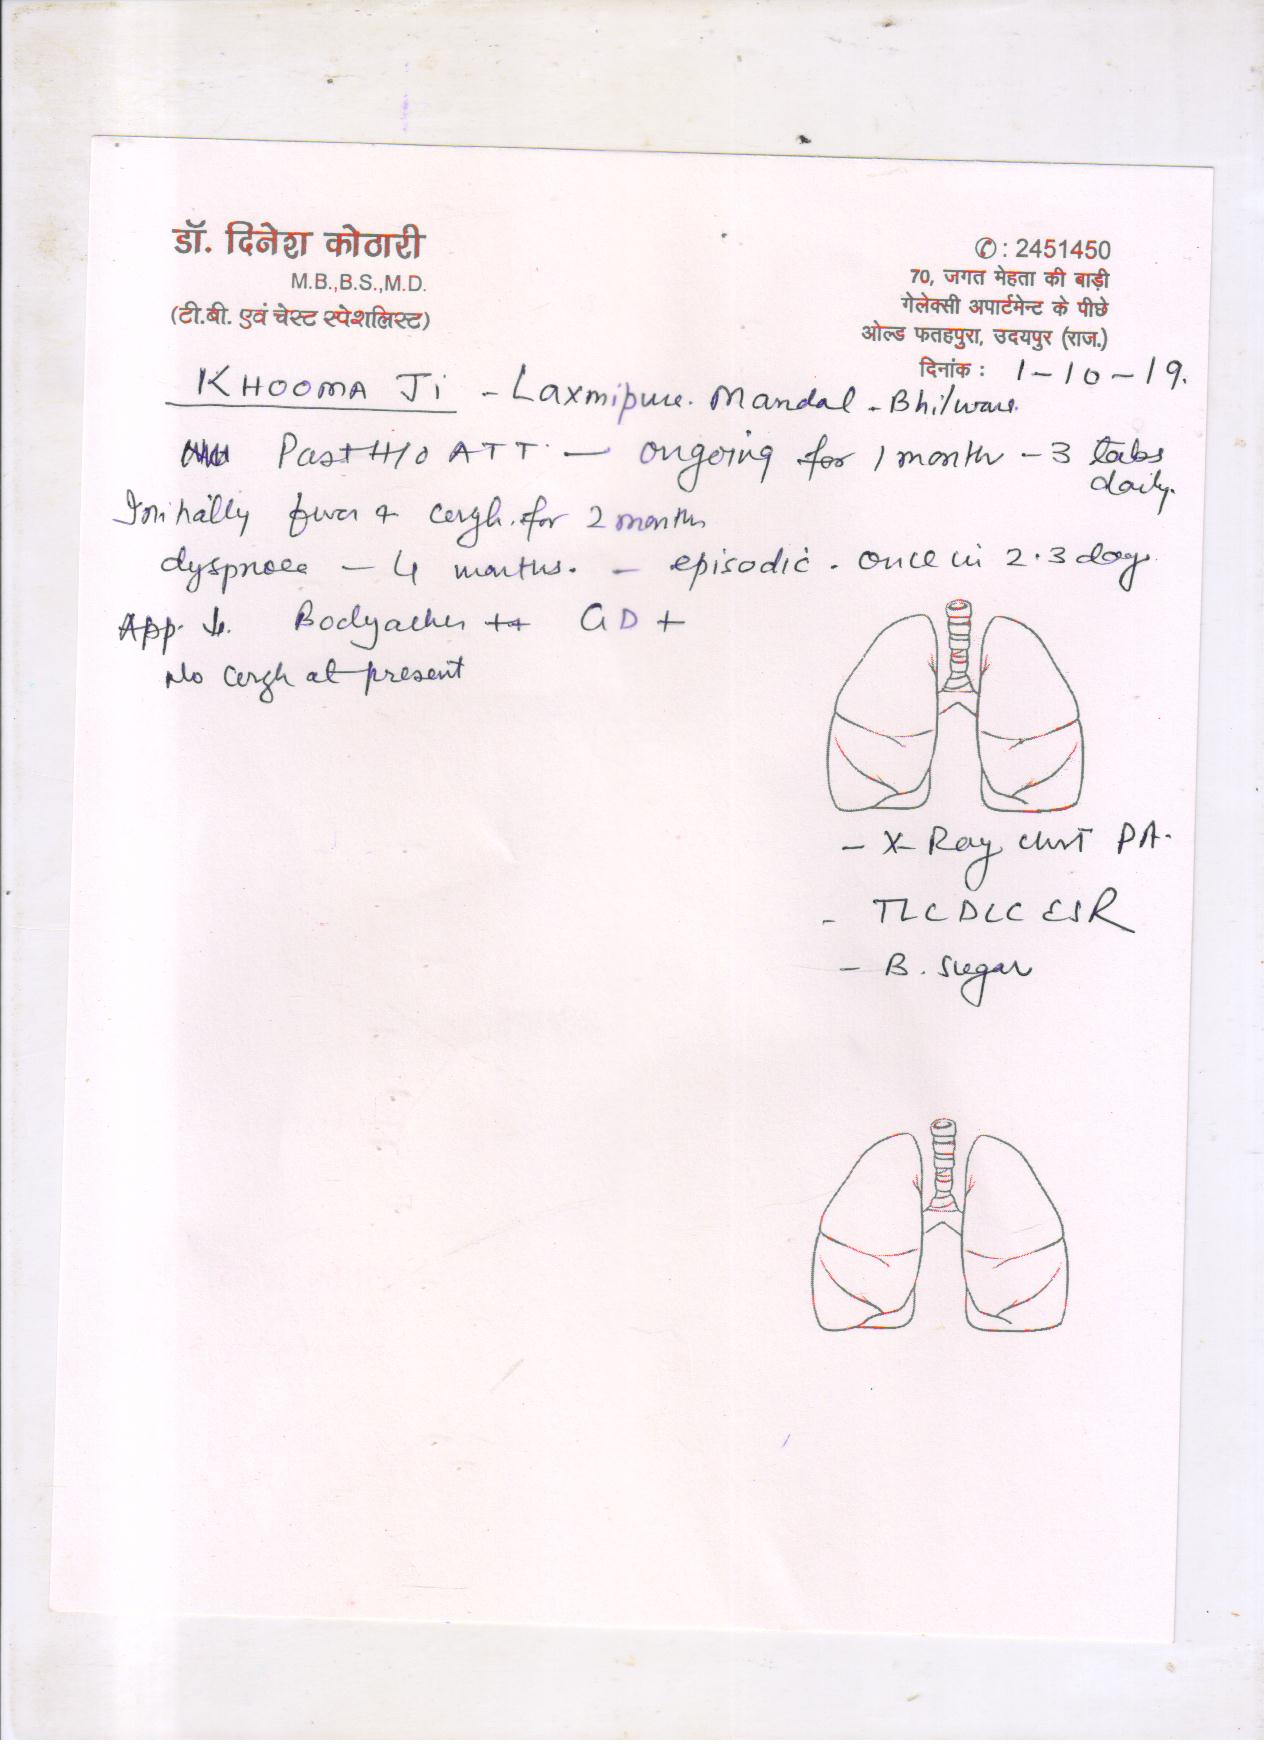 डॉ. दिनेश कोठारी
M.B.,B.S.,M.D.
(टी.बी. एवं चेस्ट स्पेशलिस्ट)
✆ : 2451450
70, जगत मेहता की बाड़ी
गेलेक्सी अपार्टमेन्ट के पीछे
ओल्ड फतहपुरा, उदयपुर (राज.)
दिनांक : 1-10-19.
KHOOMA Ji - Laxmipura. Mandal - Bhilwara.
Past H/O ATT - ongoing for 1 month - 3 tabs
daily.
Initially fever + cough. for 2 months
dyspnoea - 4 months. - episodic. once in 2-3 days
App ↓. Bodyaches ++ GD +
No cough at present
- X-Ray chest PA.
- TLC DLC ESR
- B. Sugar